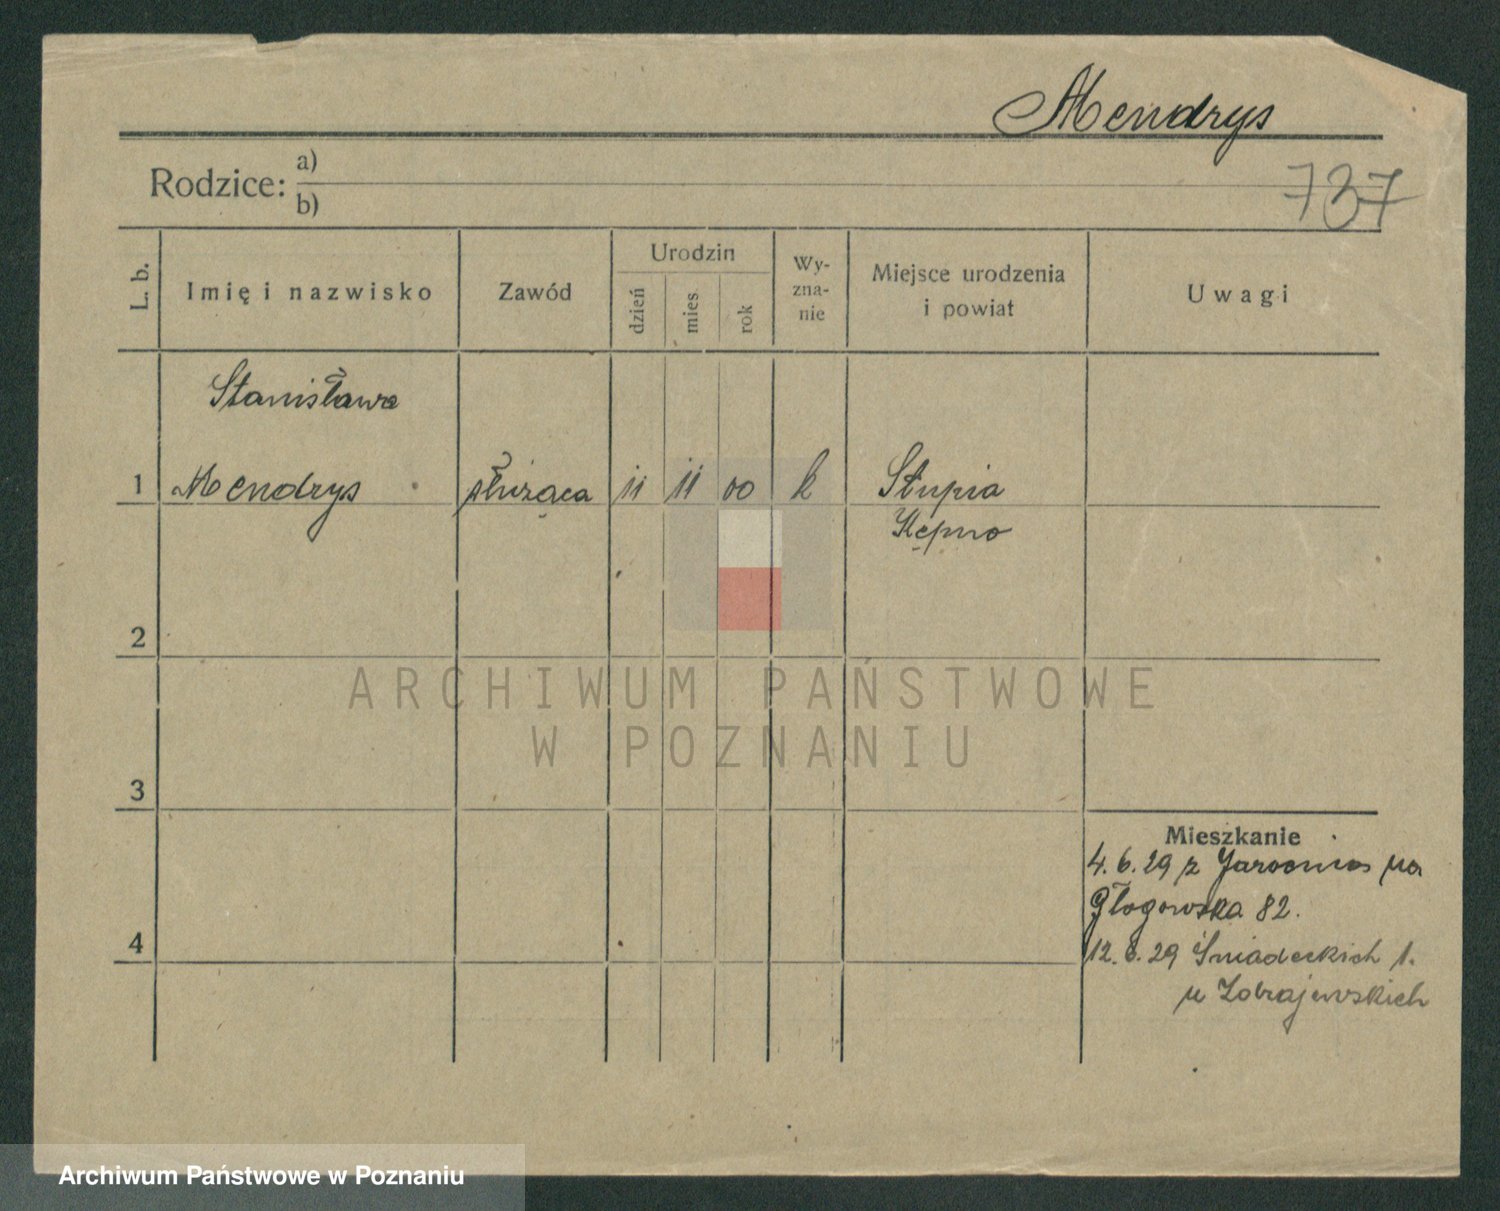 Mendrys
737
Rodzice: a)
b)
L. b.
Imię i nazwisko
Zawód
Urodzin
dzień
mies
rok
Wy-
zna-
nie
Miejsce urodzenia
i powiat
Uwagi
Stanisława
1 Mendrys służąca 11 11 00 k Słupia
Kępno
2
ARCHIWUM PAŃSTWOWE
W POZNANIU
3
Mieszkanie
4. 6. 29 z Jarocina na
Głogowska 82.
4
12. 6. 29 Śniadeckich 1.
u
Archiwum Państwowe w Poznaniu